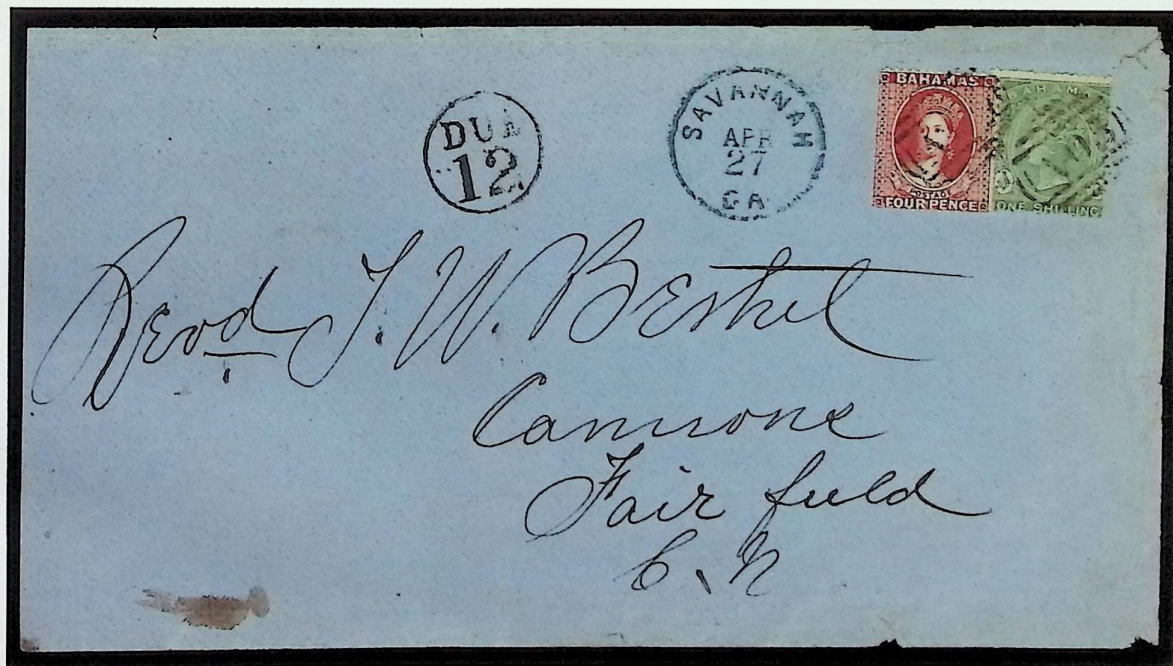 DUE
12
SAVANNAH
APR
27
GA
BAHAMAS
POSTAGE
FOUR PENCE
BAHAMAS
ONE SHILLING
Revd J. W.
Fairfield